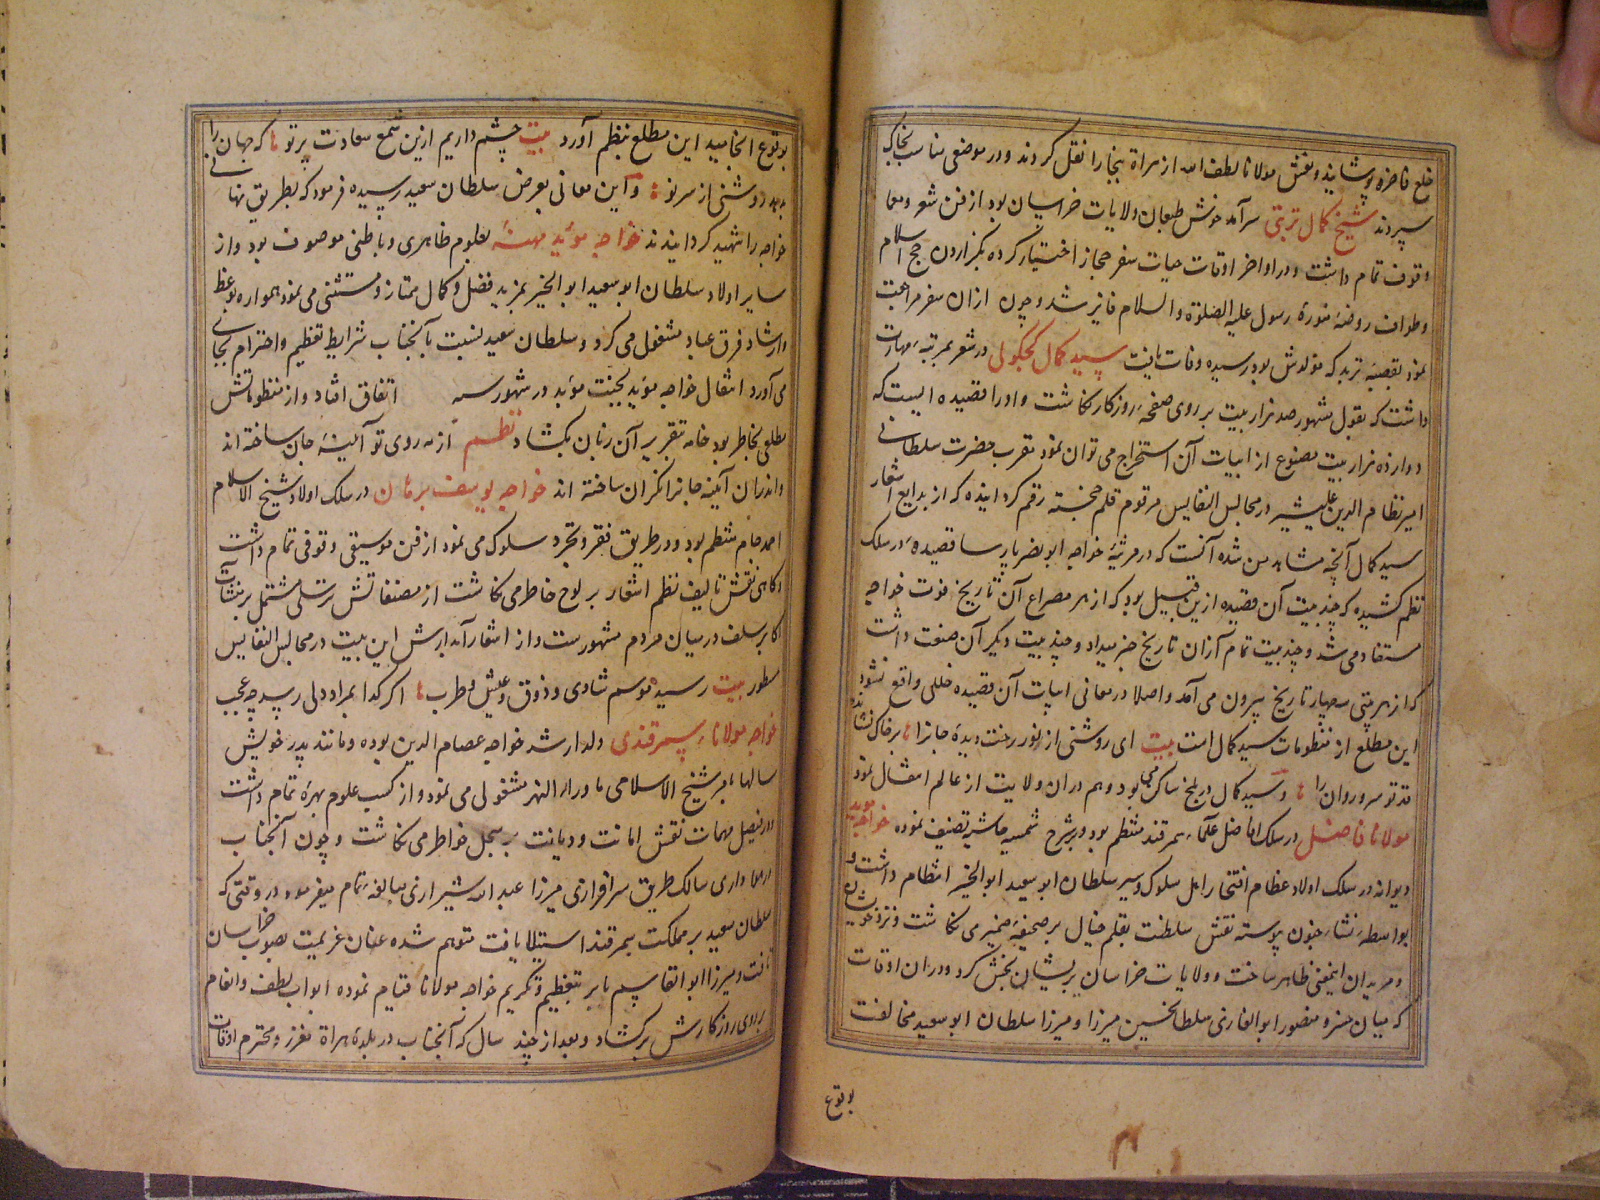 خلع فاخره پوشانید و نعش مولانا لطف الله از هراة بنجا را نقل کردند و در موضعی مناسب بخاک
سپردند شیخ کمال تربتی سرآمد خوش طبعان ولایات خراسان بود از فن شعر و معما
وقوف تمام داشت و در اواخر اوقات حیات سفر حجاز اختیار کرده بگزاردن حج اسلام
و طواف روضهٔ منورهٔ رسول علیه الصلوة و السلام فایز شد و چون ازان سفر مراجعت
نمود بقصبهٔ تربت که مولدش بود رسیده وفات یافت سید کمال کجکولی در شعر بمرتبهٔ مهارت
داشت که بقول مشهور صد هزار بیت بر روی صفحهٔ روزکار نکاشت و او را قصیده ایست که
دوازده هزار بیت مصنوع از ابیات آن استخراج می توان نمود مقرب حضرت سلطانی
امیر نظام الدین علیشیر در مجالس النفایس مرقوم قلم خجسته رقم کردانیده که از بدایع اشعار
سید کمال آنچه مشاهد من شده آنست که در مرثیهٔ خواجه ابو نصر پارسا قصیدهٔ در سلک
نظم کشیده که چند بیت آن قصیده ازین قبیل بود که از هر مصراع آن تاریخ فوت خواجه
مستفاد می شد و چند بیت تمام آن ازان تاریخ خبر میداد و چند بیت دیکر آن صنعت داشت
که از هر بیتی سه چهار تاریخ بیرون می آمد و اصلا در معانی ابیات آن قصیده خللی واقع نشود
این مطلع از منظومات سید کمال است بیت ای روشنی از نور رخت دیدهٔ جانرا بر خاک نشانده
قد تو سرو روان را و سید کمال در بلخ ساکن می بود و هم دران ولایت از عالم انتقال نمود
مولانا فاضل در سلک افاضل علماء سمرقند منتظم بود و بر شرح شمسیه حاشیه تصنیف نموده خواجه موید
دیوانه در سلک اولاد عظام افتخار اهل سلوک و سیر سلطان ابو سعید ابو الخیر انتظام داشت و
بواسطهٔ نشاء جنون پیوسته نقش سلطنت بقلم خیال بر صحیفهٔ ضمیر می نکاشت و نزد خویشان
و مریدان اینمعنی ظاهر ساخت و ولایات خراسان بریشان بخش کرد و دران اوقات
که میان خسرو منصور ابو الغازی سلطانحسین میرزا و میرزا سلطان ابو سعید مخالفت
بوقوع
بوقوع انجامید این مطلع بنظم آورد بیت چشم داریم ازین شمع سعادت پرتو که جهان را
بدهد روشنی از سر نو و این معانی بعرض سلطان سعید رسیده فرمود که بطریق نهانی
خواجه را شهید کردانیدند خواجه موید مهنه بعلوم ظاهری و باطنی موصوف بود و از
سایر اولاد سلطان ابو سعید ابو الخیر بمزید فضل و کمال ممتاز و مستثنی می نمود همواره بوعظ
و ارشاد فرق عباد مشغولی می کرد و سلطان سعید نسبت بآنجناب شرایط تعظیم و احترام بجای
می آورد انتقال خواجه موید بجنت موبد در شهور سنه اتفاق افتاد و از منظوماتش
مطلعی بخاطر بود خامه بتقریر آن زبان بکشاد نظم از مه روی تو آئینهٔ جان ساخته اند
و اندران آئینه جانرا نکران ساخته اند خواجه یوسف برهان در سلک اولاد شیخ الاسلام
احمد جام منتظم بود و در طریق فقر و تجرد سلوک می نمود از فن موسیقی وقوفی تمام داشت
و کاهی نقش تالیف نظم اشعار بر لوح خاطر می نکاشت از مصنفاتش ترسلی مشتمل بر منشآت
اکابر سلف در میان مردم مشهورست و از اشعار آبدارش این بیت در مجالس النفایس
مسطور بیت رسید موسم شادی و ذوق و عیش و طرب اکر کدا بمراد دلی رسد چه عجب
خواجه مولانا سمرقندی ولد ارشد خواجه عصام الدین بوده و مانند پدر خویش
سالها بامر شیخ الاسلامی ماوراء النهر مشغولی می نمود و از کسب علوم بهرهٔ تمام داشت
و در فیصل مهمات نقش امانت و دیانت بر سجل خواطر می نکاشت و چون آنجناب
در هواداری سالک طریق سرافرازی میرزا عبد الله شیرازی مبالغهٔ تمام میفرمود در وقتی که
سلطان سعید بر مملکت سمرقند استیلا یافت متوهم شده عنان عزیمت بصوب خراسان
تافت و میرزا ابو القاسم بابر بتعظیم و تکریم خواجه مولانا قیام نموده ابواب لطف و انعام
بر روی روزکارش برکشاد و بعد از چند سال که آنجناب در بلدهٔ هراة معزز و محترم اوقات